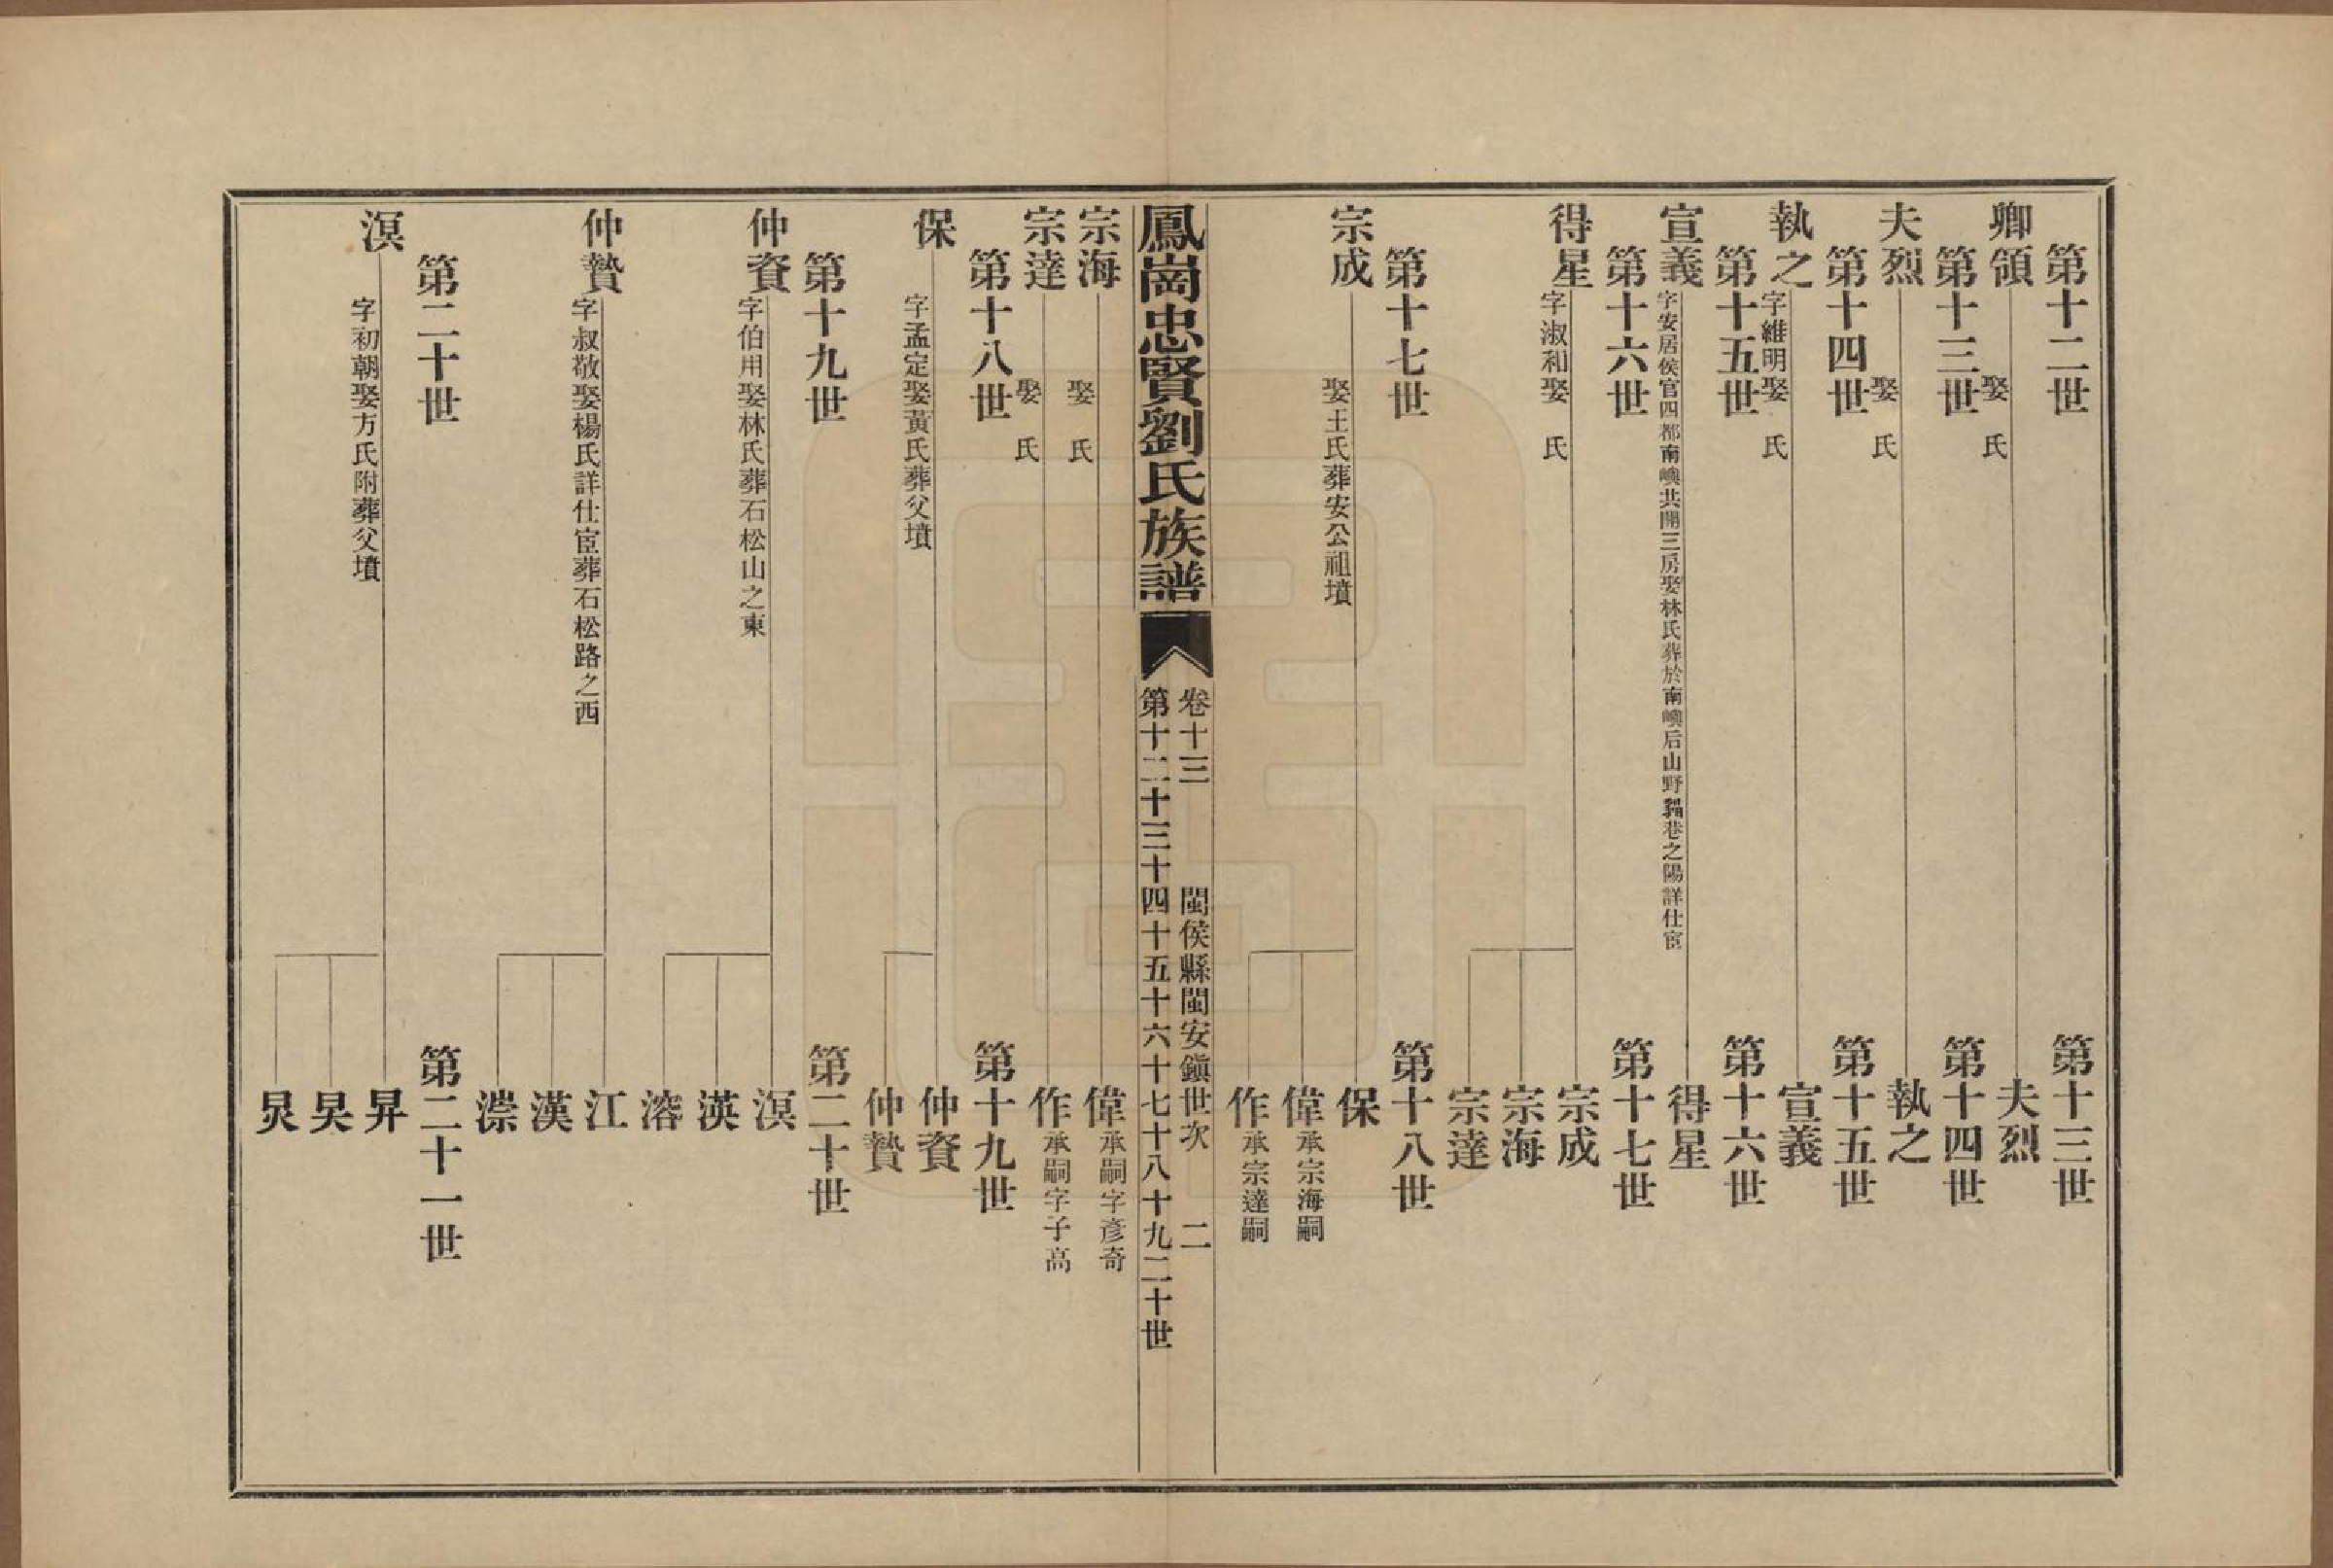 第十二世 第十三世
卿領 娶 氏 夫烈
第十三世 第十四世
夫烈 娶 氏 執之
第十四世 第十五世
執之 字維明娶 氏 宣義
第十五世 第十六世
宣義 字安居侯官四都南嶼共開三房娶林氏葬於南嶼后山野 巷之陽詳仕宦 得星
第十六世 第十七世
得星 字淑和娶 氏 宗成
宗海
宗達
第十七世 第十八世
宗成 娶王氏葬安公祖墳 保
偉 承宗海嗣
作 承宗達嗣
鳳崗忠賢劉氏族譜
卷十三 閩侯縣閩安鎭世次 二
第十二十三十四十五十六十七十八十九二十世
宗海 娶 氏 偉 承嗣字彥奇
宗達 娶 氏 作 承嗣字子高
第十八世 第十九世
保 字孟定娶黃氏葬父墳 仲資
仲贄
第十九世 第二十世
仲資 字伯用娶林氏葬石松山之東 溟
渶
溶
仲贄 字叔敬娶楊氏詳仕宦葬石松路之西 江
漢
漴
第二十世 第二十一世
溟 字初朝娶方氏附葬父墳 昇
昊
炅